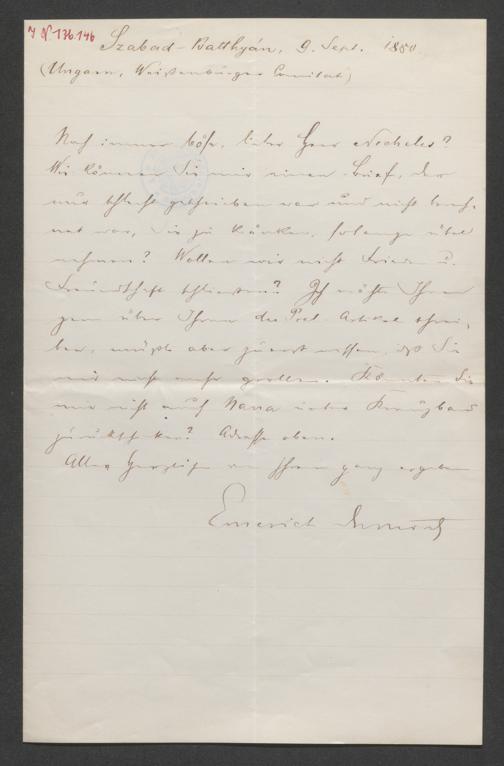 J N 136.146
Szabad-Batthyán, 9. Sept. 1880
(Ungarn, Weißenburger Comitat)
Noch immer böse, lieber Herr Necheles?
Wie können Sie mir einen Brief, der
nur schlecht geschrieben war und nicht berech-
net war, Sie zu kränken, so lange übel
nehmen? Wollen wir nicht Frieden u.
Freundschaft schließen? Ich möchte Ihnen
gern über Ihren du Prel Artikel schrei-
ben, müßte aber zuerst wissen, daß Sie
mir nicht mehr grollen. Könnten Sie
mir nicht auch Nana unter Kreuzband
zurückschicken? Adresse oben.
Alles Herzliche von Ihrem ganz ergebenen
Emerich